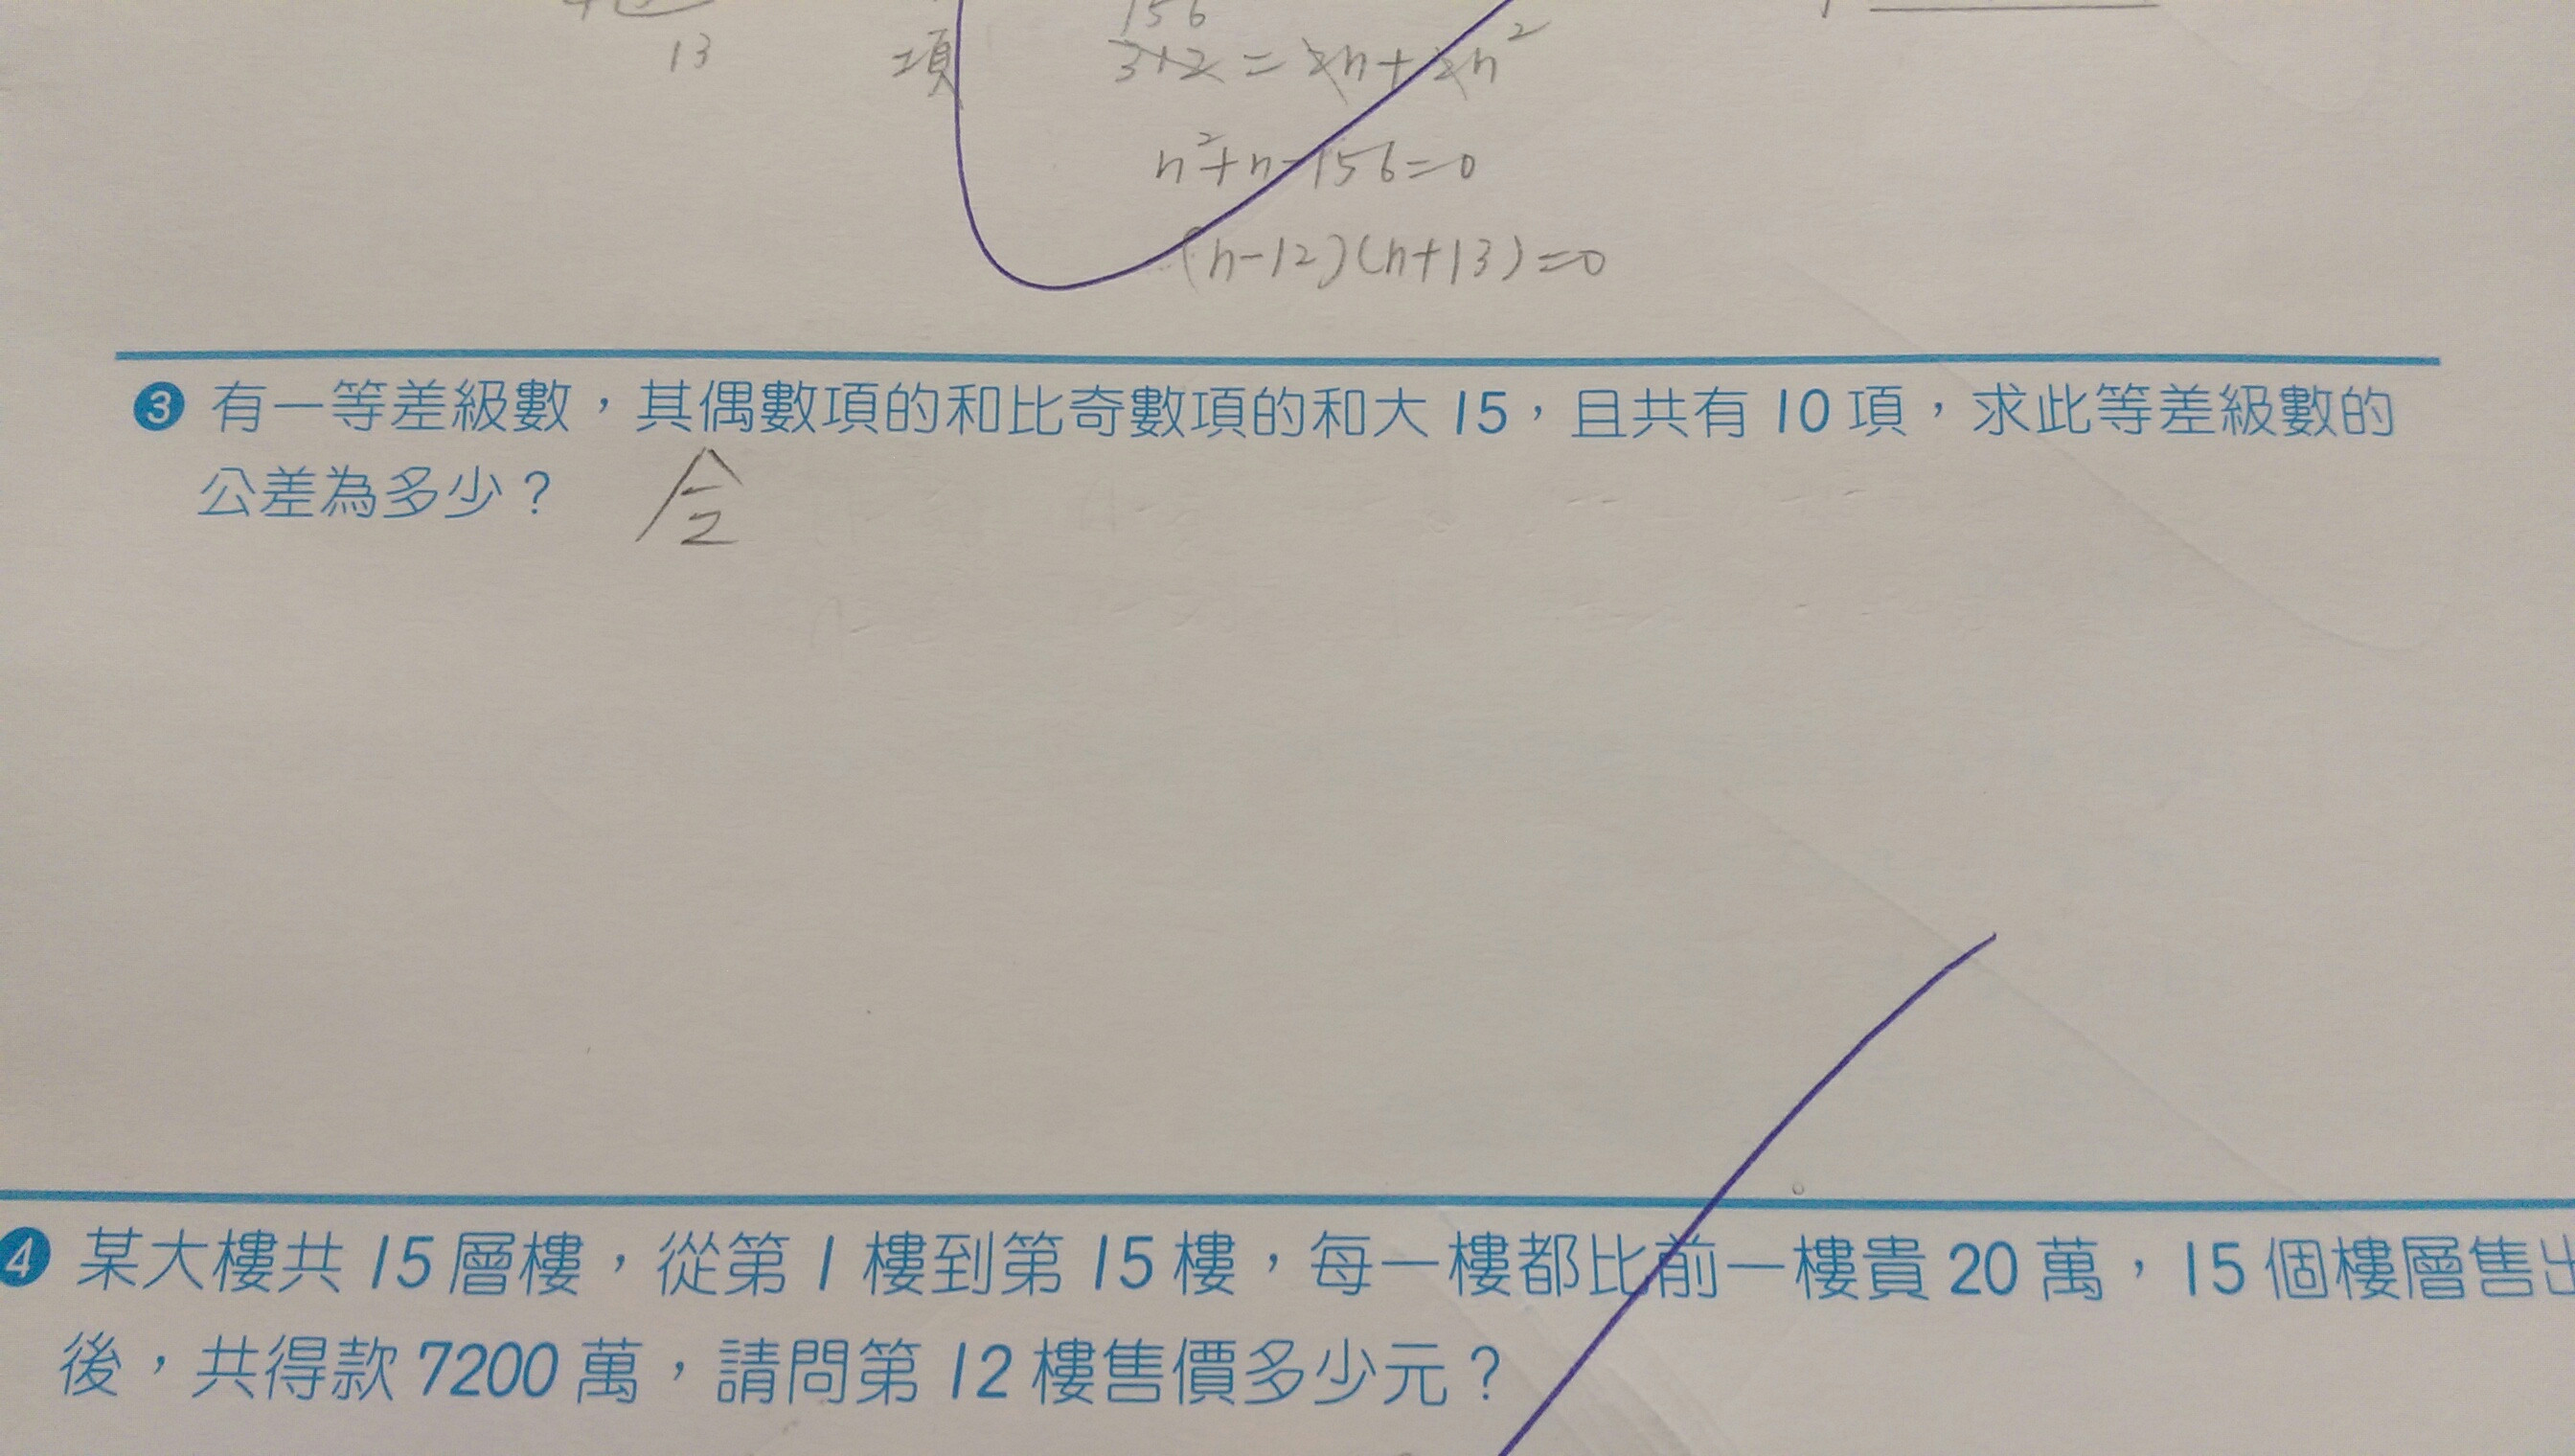 156
13
項
3+2 = 2n + 2n²
n²+n-156=0
(n-12)(n+13)=0
3 有一等差級數，其偶數項的和比奇數項的和大 15，且共有 10 項，求此等差級數的
公差為多少？
4 某大樓共 15 層樓，從第 1 樓到第 15 樓，每一樓都比前一樓貴 20 萬，15 個樓層售出
後，共得款 7200 萬，請問第 12 樓售價多少元？